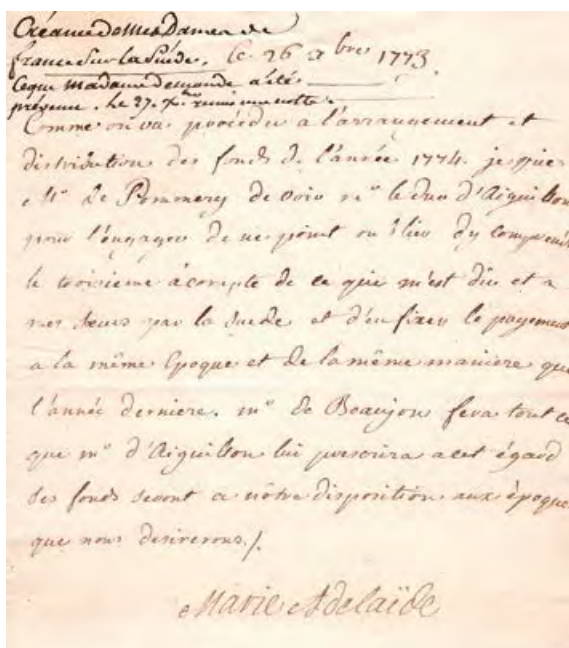 Créance de Mes Dames de
france Sur la Suéde. Ce 26 7bre 1773.
Ceque Madame demande a été
prévenu. Le 27. remis une notte.
Comme on va procéder a l'arrangement et
distribution des fonds de l'année 1774. je prie
Mr. de Pommery de voir mr. le duc d'Aiguillon
pour l'engager de ne point oublier dy comprendre
le troisieme acompte de ce qui m'est dû et a
mes soeurs par la Suede et d'en fixer le payement
a la même Epoque et de la même maniere que
l'année derniere. mr. de Beaujon fera tout ce
que mr. d'Aiguillon lui prescrira a cet égard
les fonds seront a nôtre disposition aux époques
que nous desirerons./.
Marie Adelaïde